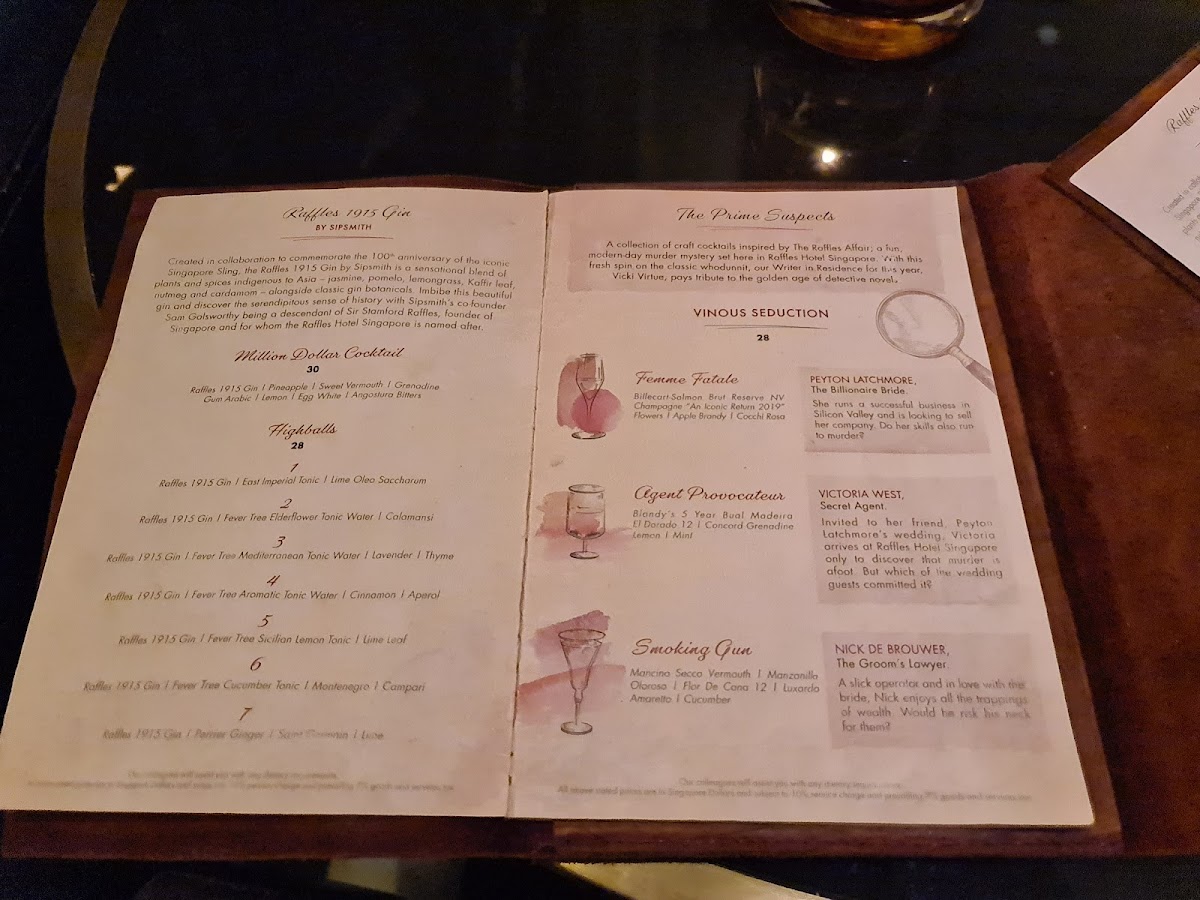 Raffles 1915 Gin
BY SIPSMITH
Created in collaboration to commemorate the 100th anniversary of the iconic
Singapore Sling, the Raffles 1915 Gin by Sipsmith is a sensational blend of
plants and spices indigenous to Asia – jasmine, pomelo, lemongrass, Kaffir leaf,
nutmeg and cardamom – alongside classic gin botanicals. Imbibe this beautiful
gin and discover the serendipitous sense of history with Sipsmith's co-founder
Sam Galsworthy being a descendant of Sir Stamford Raffles, founder of
Singapore and for whom the Raffles Hotel Singapore is named after.
Million Dollar Cocktail
30
Raffles 1915 Gin | Pineapple | Sweet Vermouth | Grenadine
Gum Arabic | Lemon | Egg White | Angostura Bitters
Highballs
28
1
Raffles 1915 Gin | East Imperial Tonic | Lime Oleo Saccharum
2
Raffles 1915 Gin | Fever Tree Elderflower Tonic Water | Calamansi
3
Raffles 1915 Gin | Fever Tree Mediterranean Tonic Water | Lavender | Thyme
4
Raffles 1915 Gin | Fever Tree Aromatic Tonic Water | Cinnamon | Aperol
5
Raffles 1915 Gin | Fever Tree Sicilian Lemon Tonic | Lime Leaf
6
Raffles 1915 Gin | Fever Tree Cucumber Tonic | Montenegro | Campari
7
Raffles 1915 Gin | Perrier Ginger | Saint Germain |
Our colleagues will assist you with any dietary requirements.
The Prime Suspects
A collection of craft cocktails inspired by The Raffles Affair; a fun,
modern-day murder mystery set here in Raffles Hotel Singapore. With this
fresh spin on the classic whodunnit, our Writer in Residence for this year,
Vicki Virtue, pays tribute to the golden age of detective novel.
VINOUS SEDUCTION
28
Femme Fatale
Billecart-Salmon Brut Reserve NV
Champagne "An Iconic Return 2019"
Flowers | Apple Brandy | Cocchi Rosa
PEYTON LATCHMORE,
The Billionaire Bride.
She runs a successful business in
Silicon Valley and is looking to sell
her company. Do her skills also run
to murder?
Agent Provocateur
Blandy's 5 Year Bual Madeira
El Dorado 12 | Concord Grenadine
Lemon | Mint
VICTORIA WEST,
Secret Agent.
Invited to her friend, Peyton
Latchmore's wedding, Victoria
arrives at Raffles Hotel Singapore
only to discover that murder is
afoot. But which of the wedding
guests committed it?
Smoking Gun
Mancino Secco Vermouth | Manzanilla
Oloroso | Flor De Cana 12 | Luxardo
Amaretto | Cucumber
NICK DE BROUWER,
The Groom's Lawyer.
A slick operator and in love with the
bride, Nick enjoys all the trappings
of wealth. Would he risk his neck
for them?
Our colleagues will assist you with any dietary requirements.
All above stated prices are in Singapore Dollars and subject to 10% service charge and prevailing 7% goods and services tax.
Raffles